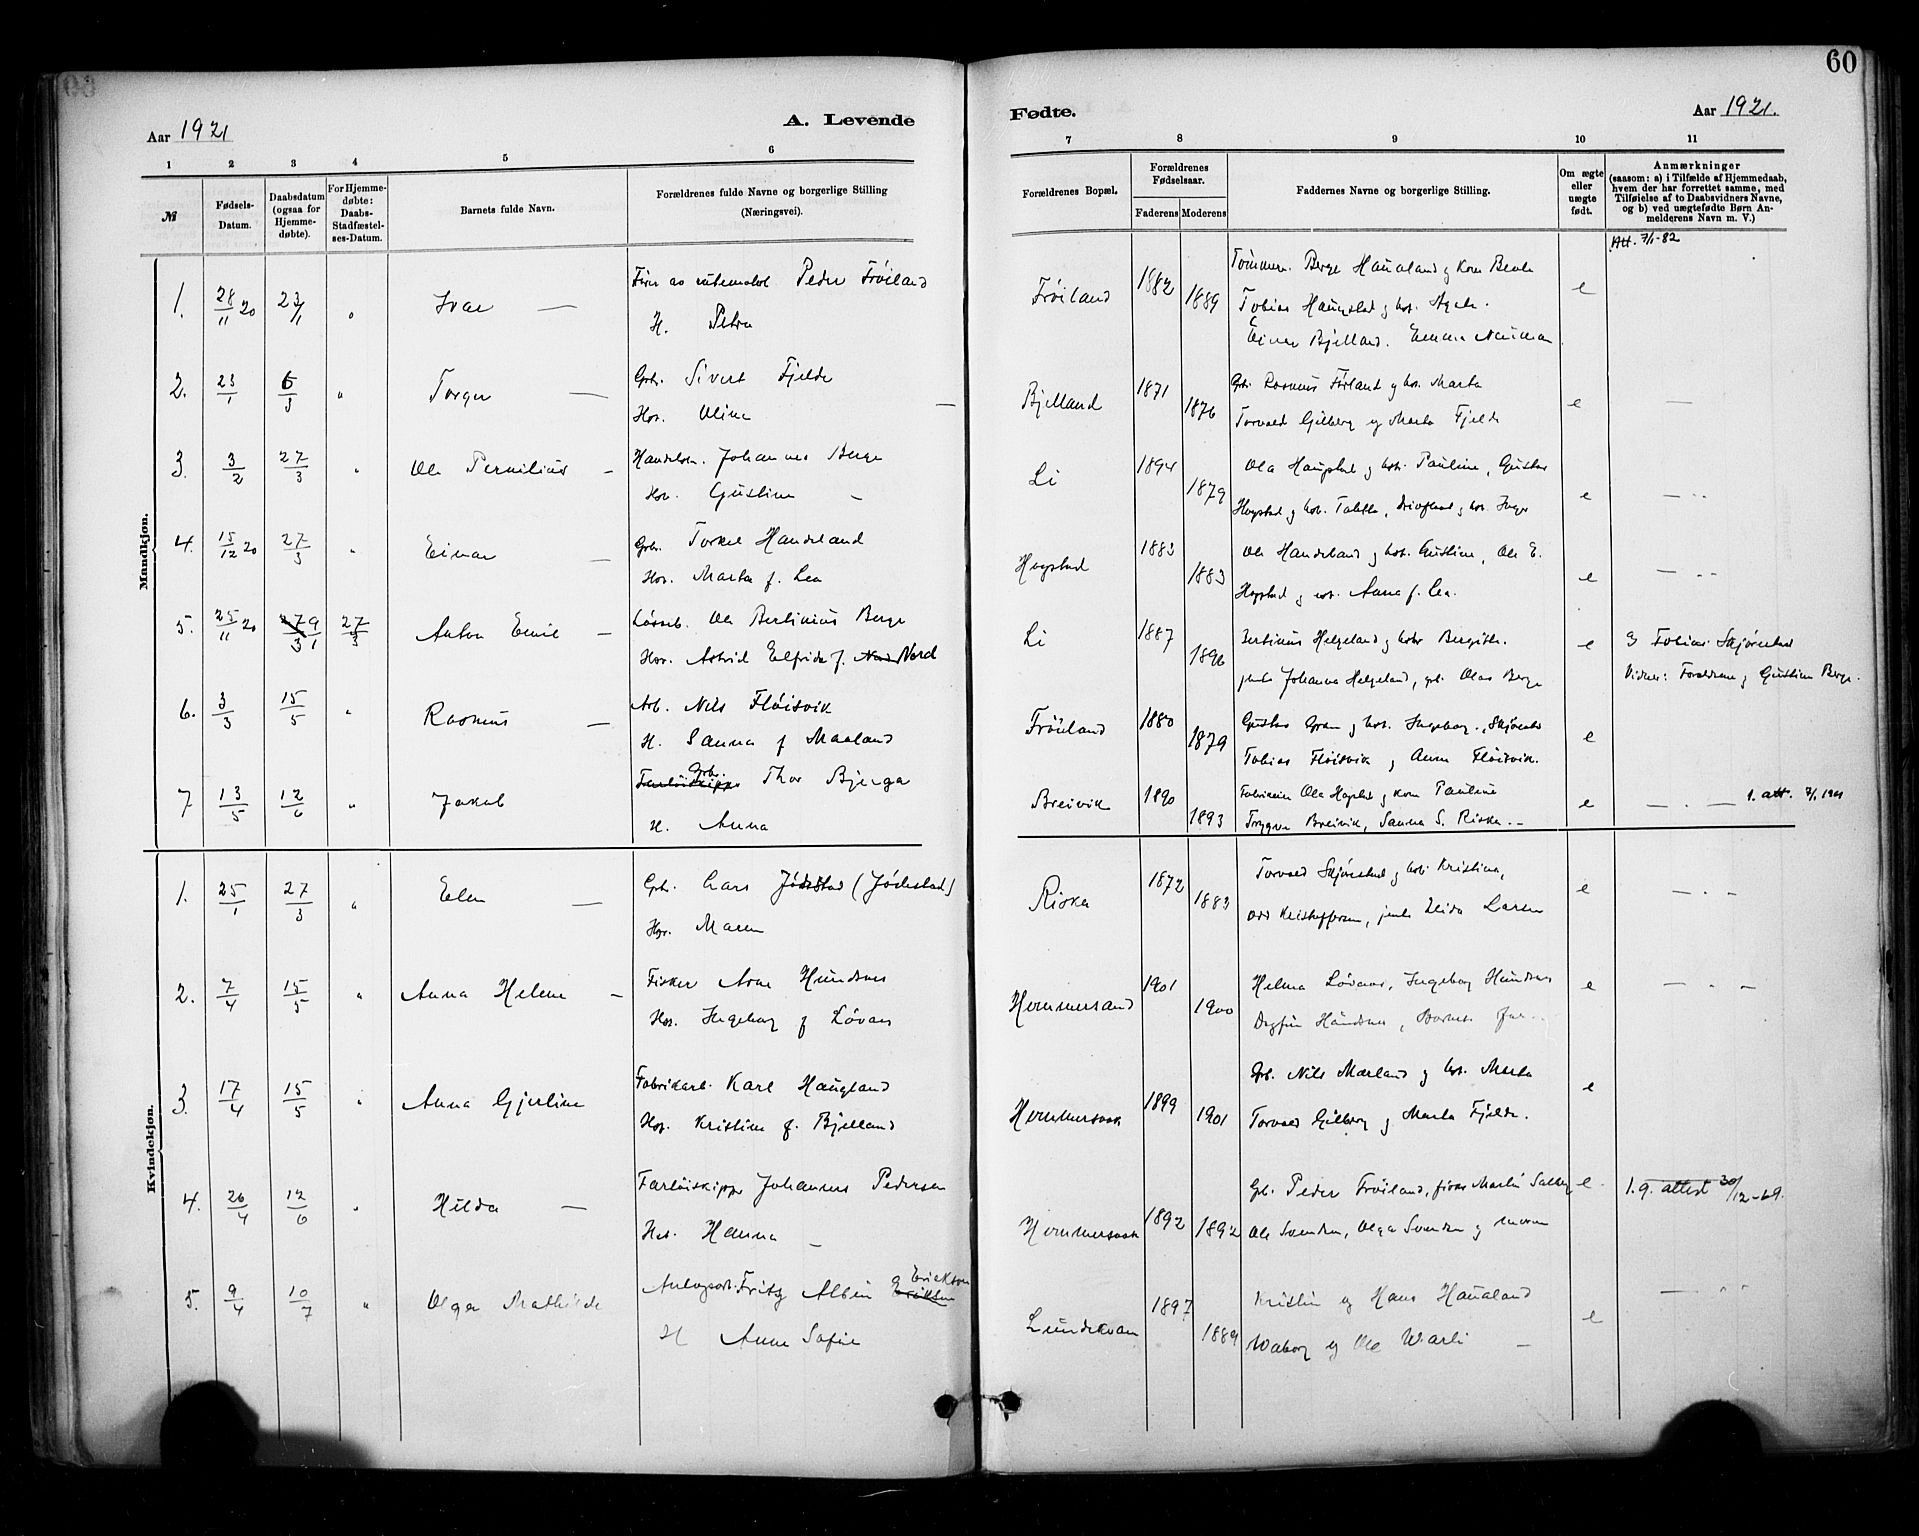 60
Aar 1921
A. Levende
Fødte.
Aar 1921.
1 2 3 4 5 6 7 8 9 10 11
№
Fødsels-
Datum.
Daabsdatum
(ogsaa for
Hjemme-
døbte).
For Hjemme-
døbte:
Daabs-
Stadfæstel-
ses-Datum.
Barnets fulde Navn.
Forældrenes fulde Navne og borgerlige Stilling
(Næringsvei).
Forældrenes Bopæl.
Forældrenes
Fødselsaar.
Faderens Moderens
Faddernes Navne og borgerlige Stilling.
Om ægte
eller
uægte
født.
Anmærkninger
(saasom: a) i Tilfælde af Hjemmedaab,
hvem der har forrettet samme, med
Tilføielse af to Daabsvidners Navne,
og b) ved uægtefødte Børn An-
melderens Navn m. V.)
Att. 7/1-82
Mandkjøn.
1. 28/11 20 23/1 " Ivar — Peder Frøiland
H. Petra
Frøiland 1882 1889 Berge Haualand og
Tobias Haugstad og
Einar Bjelland. Emma
e
2. 23/1 6/3 " Torger — Grbr. Sivert Fjelde
Hos. Oline —
Bjelland 1871 1876 Rasmus Førland og hst. Marta
Torvald Gilberg og Marta Fjelde
e —
3. 3/2 27/3 " Ole Pernilius — Johannes Berge
Hos. Gustine —
Li 1894 1879 Ola Haugstad og hst. Pauline, Gustav
Hogstad og hst.
e —
4. 15/12 20 27/3 " Einar — Grbr. Torkel Handeland
Hos. Marta f. Lea
Hogstad 1883 1883 Ole Handeland og hst. Gustine, Ole E.
Hogstad og hst. Anna f. Lea.
e —
5. 25/11 20 27/3 9/1 27/3 Anton Emil — Ole Bertinius Berge
Hos. Astrid Elfrida f. Nord
Li 1887 1896 Bertinus Helgeland og hstr Bergite.
Johanna Helgeland, Olav Berge
e Tobias Skjørestad
Vidner: Forældrene og Gustine Berge.
6. 3/3 15/5 " Rasmus — Arb. Nils Fløisvik
H. Sanna f Maaland
Frøiland 1880 1879 Gustav Gram og hst. Ingeborg,
Tobias Fløisvik og Anna Fløisvik.
e
7 13/5 12/6 " Jakob Grbr. Thor Bjerga
H. Anna
Breivik 1890 1893 Ola Hogstad og kone Pauline
Trygve Breivik, Sanna S. Riska --
e — . — 1. att.
Kvindekjøn.
1. 25/1 27/3 " Elen — Grbr. Lars Jødestad (Jødestad)
Hos. Maren
Riska 1872 1883 Torvald Skjørestad og hst. Kristina,
Kristoffersen, Larsen
e — . —
2. 7/4 15/5 " Anna Helene — Fisker Arne Hundsnes
Hos. Ingeborg f Løvaas
Hommersand 1901 1900 Helma Løvaas, Ingeborg Hundsnes
Dagfin Hundsnes, Barnets far.
e — . —
3. 17/4 15/5 " Anna Gjerline Fabrikarb. Karl Haugland
Hos. Kristine f. Bjelland
Hommersaak 1899 1901 Grb. Nils Maaland og hst. Marta
Torvald Gilberg og Marta Fjelde.
e
4. 26/4 12/6 " Hilda — Farløiskipper Johannes Pedersen
Hos. Hanna —
Hommersaak 1892 1892 Grb. Peder Frøiland,
Ole Svendsen, Olga Svendsen og moren
e. 1. g. attest 30/12-69.
5. 9/4 10/7 " Olga Mathilde Fritz Albin Erickson
H Anne Sofie
Lundekvam 1897 1889 Kristin og Hans Haualand
Waborg og Ole Warli —
e —